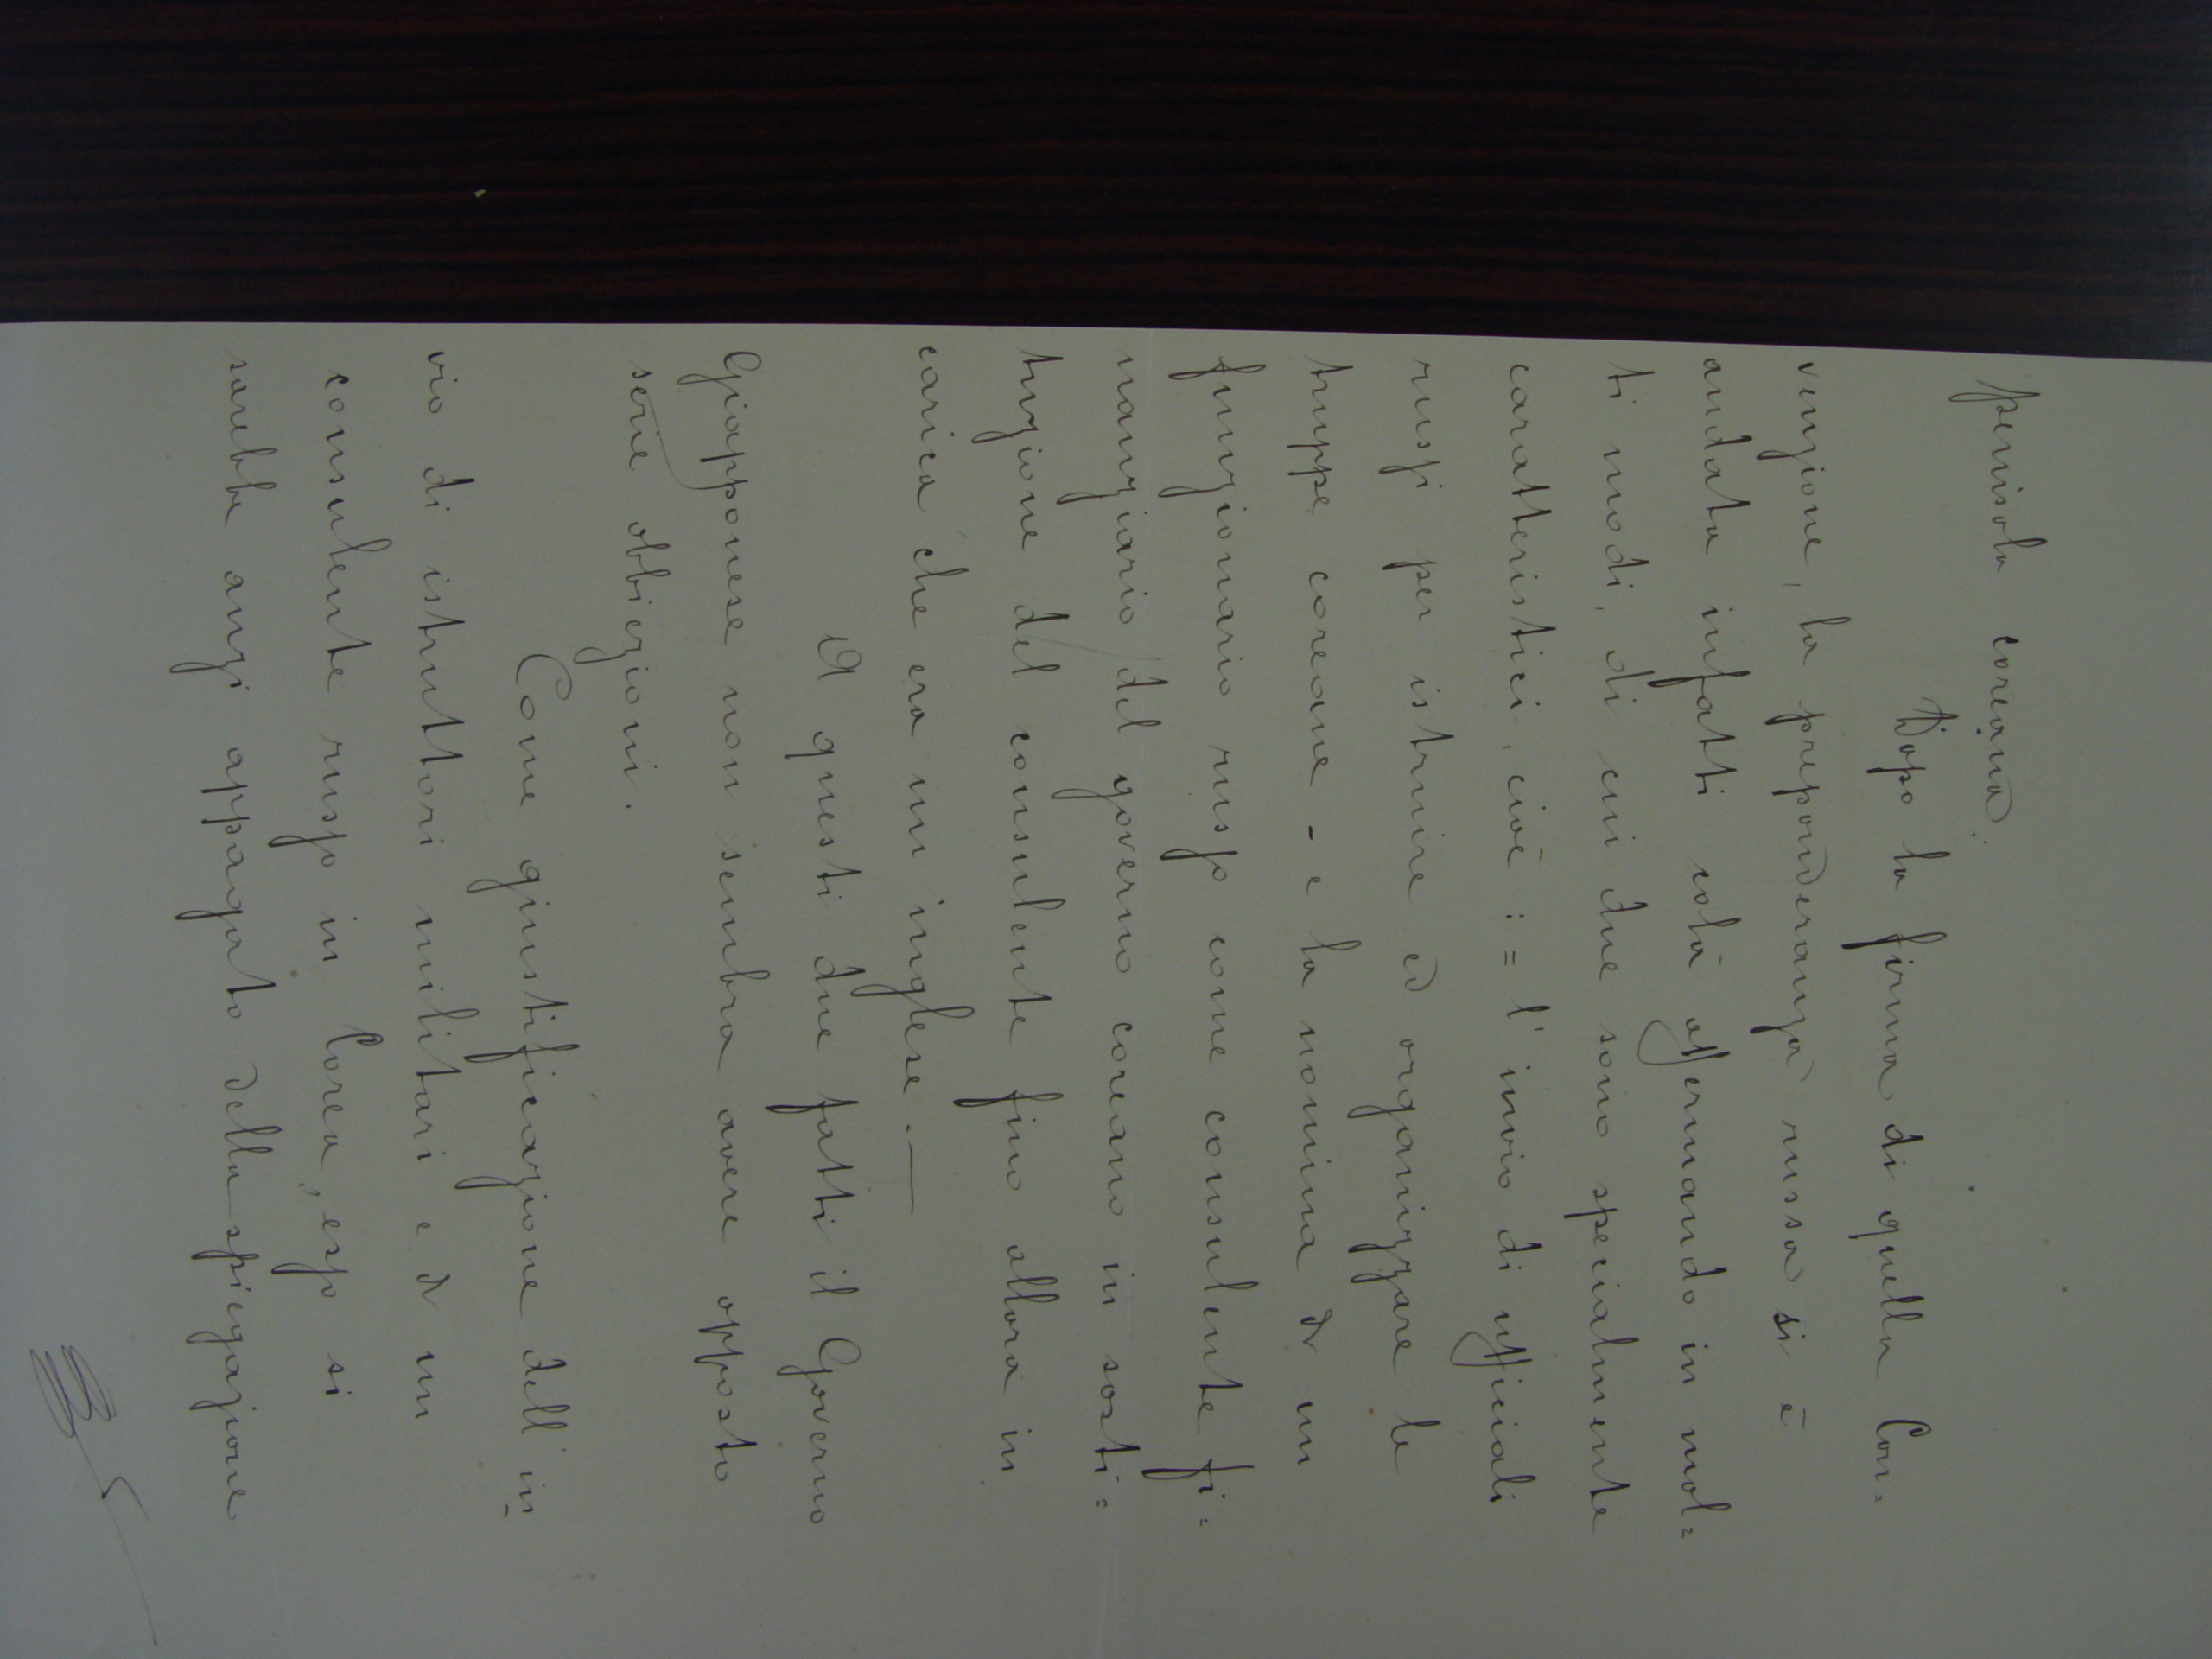 penisola coreana.
Dopo la firma di quella Con=
venzione, la preponderanza russa si è
andata infatti colà affermando in mol=
ti modi, di cui due sono specialmente
caratteristici, cioè := l'invio di ufficiali
russi per istruire ed organizzare le
truppe coreane - e la nomina di un
funzionario russo come consulente fi=
nanziario del governo coreano in sosti=
tuzione del consulente fino allora in
carica che era un inglese.—
A questi due fatti il Governo
Giapponese non sembra avere opposto
serie obbiezioni.
Come giustificazione dell'in=
vio di istruttori militari e di un
consulente russo in Corea, esso si
sarebbe anzi appagato della spiegazione